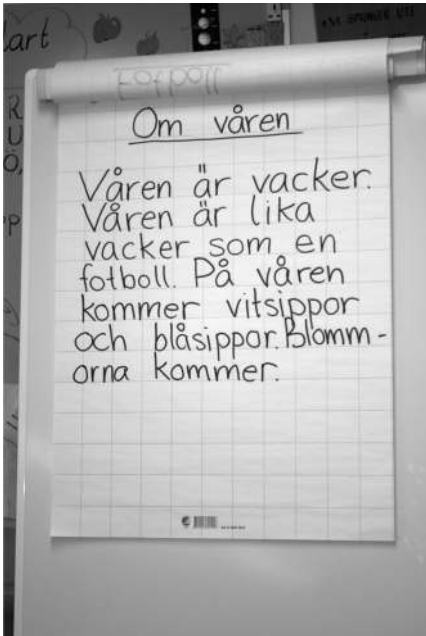 lart
Fotboll
Om våren
Våren är vacker.
Våren är lika
vacker som en
fotboll. På våren
kommer vitsippor
och blåsippor. Blomm-
orna kommer.